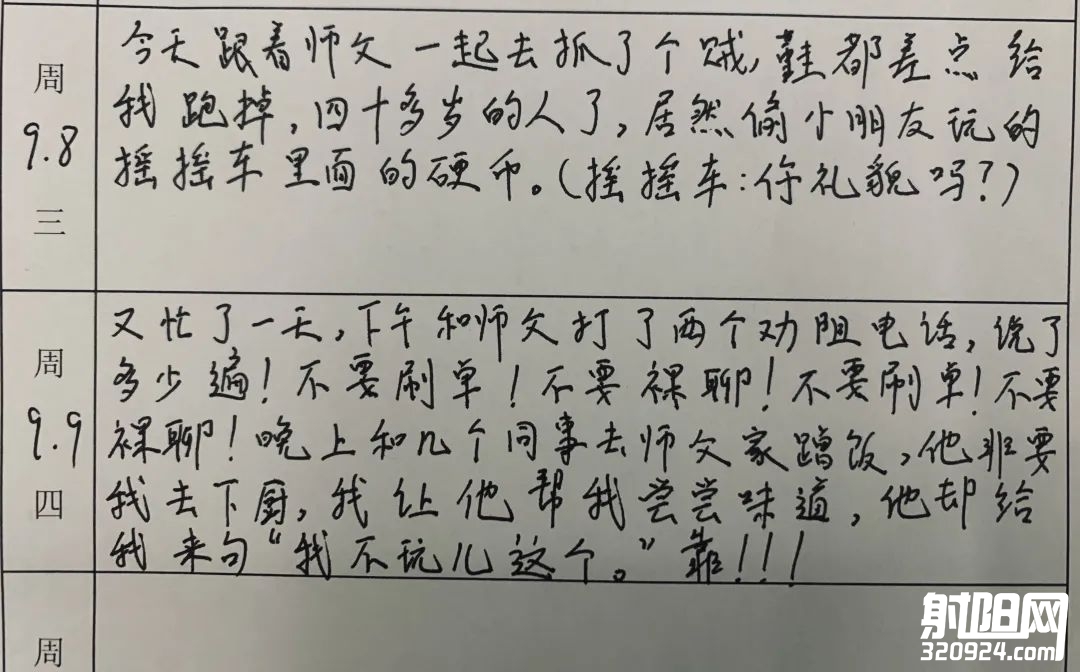 周
9.8
三
今天跟着师父一起去抓了个贼,鞋都差点给
我跑掉,四十多岁的人了,居然偷小朋友玩的
摇摇车里面的硬币。(摇摇车:你礼貌吗?)
周
9.9
四
又忙了一天,下午和师父打了两个劝阻电话,说了
多少遍!不要刷单!不要裸聊!不要刷单!不要
裸聊!晚上和几个同事去师父家蹭饭,他非要
我去下厨,我让他帮我尝尝味道,他却给
我来句“我不玩儿这个。”靠!!!
周
射阳网
320924.com